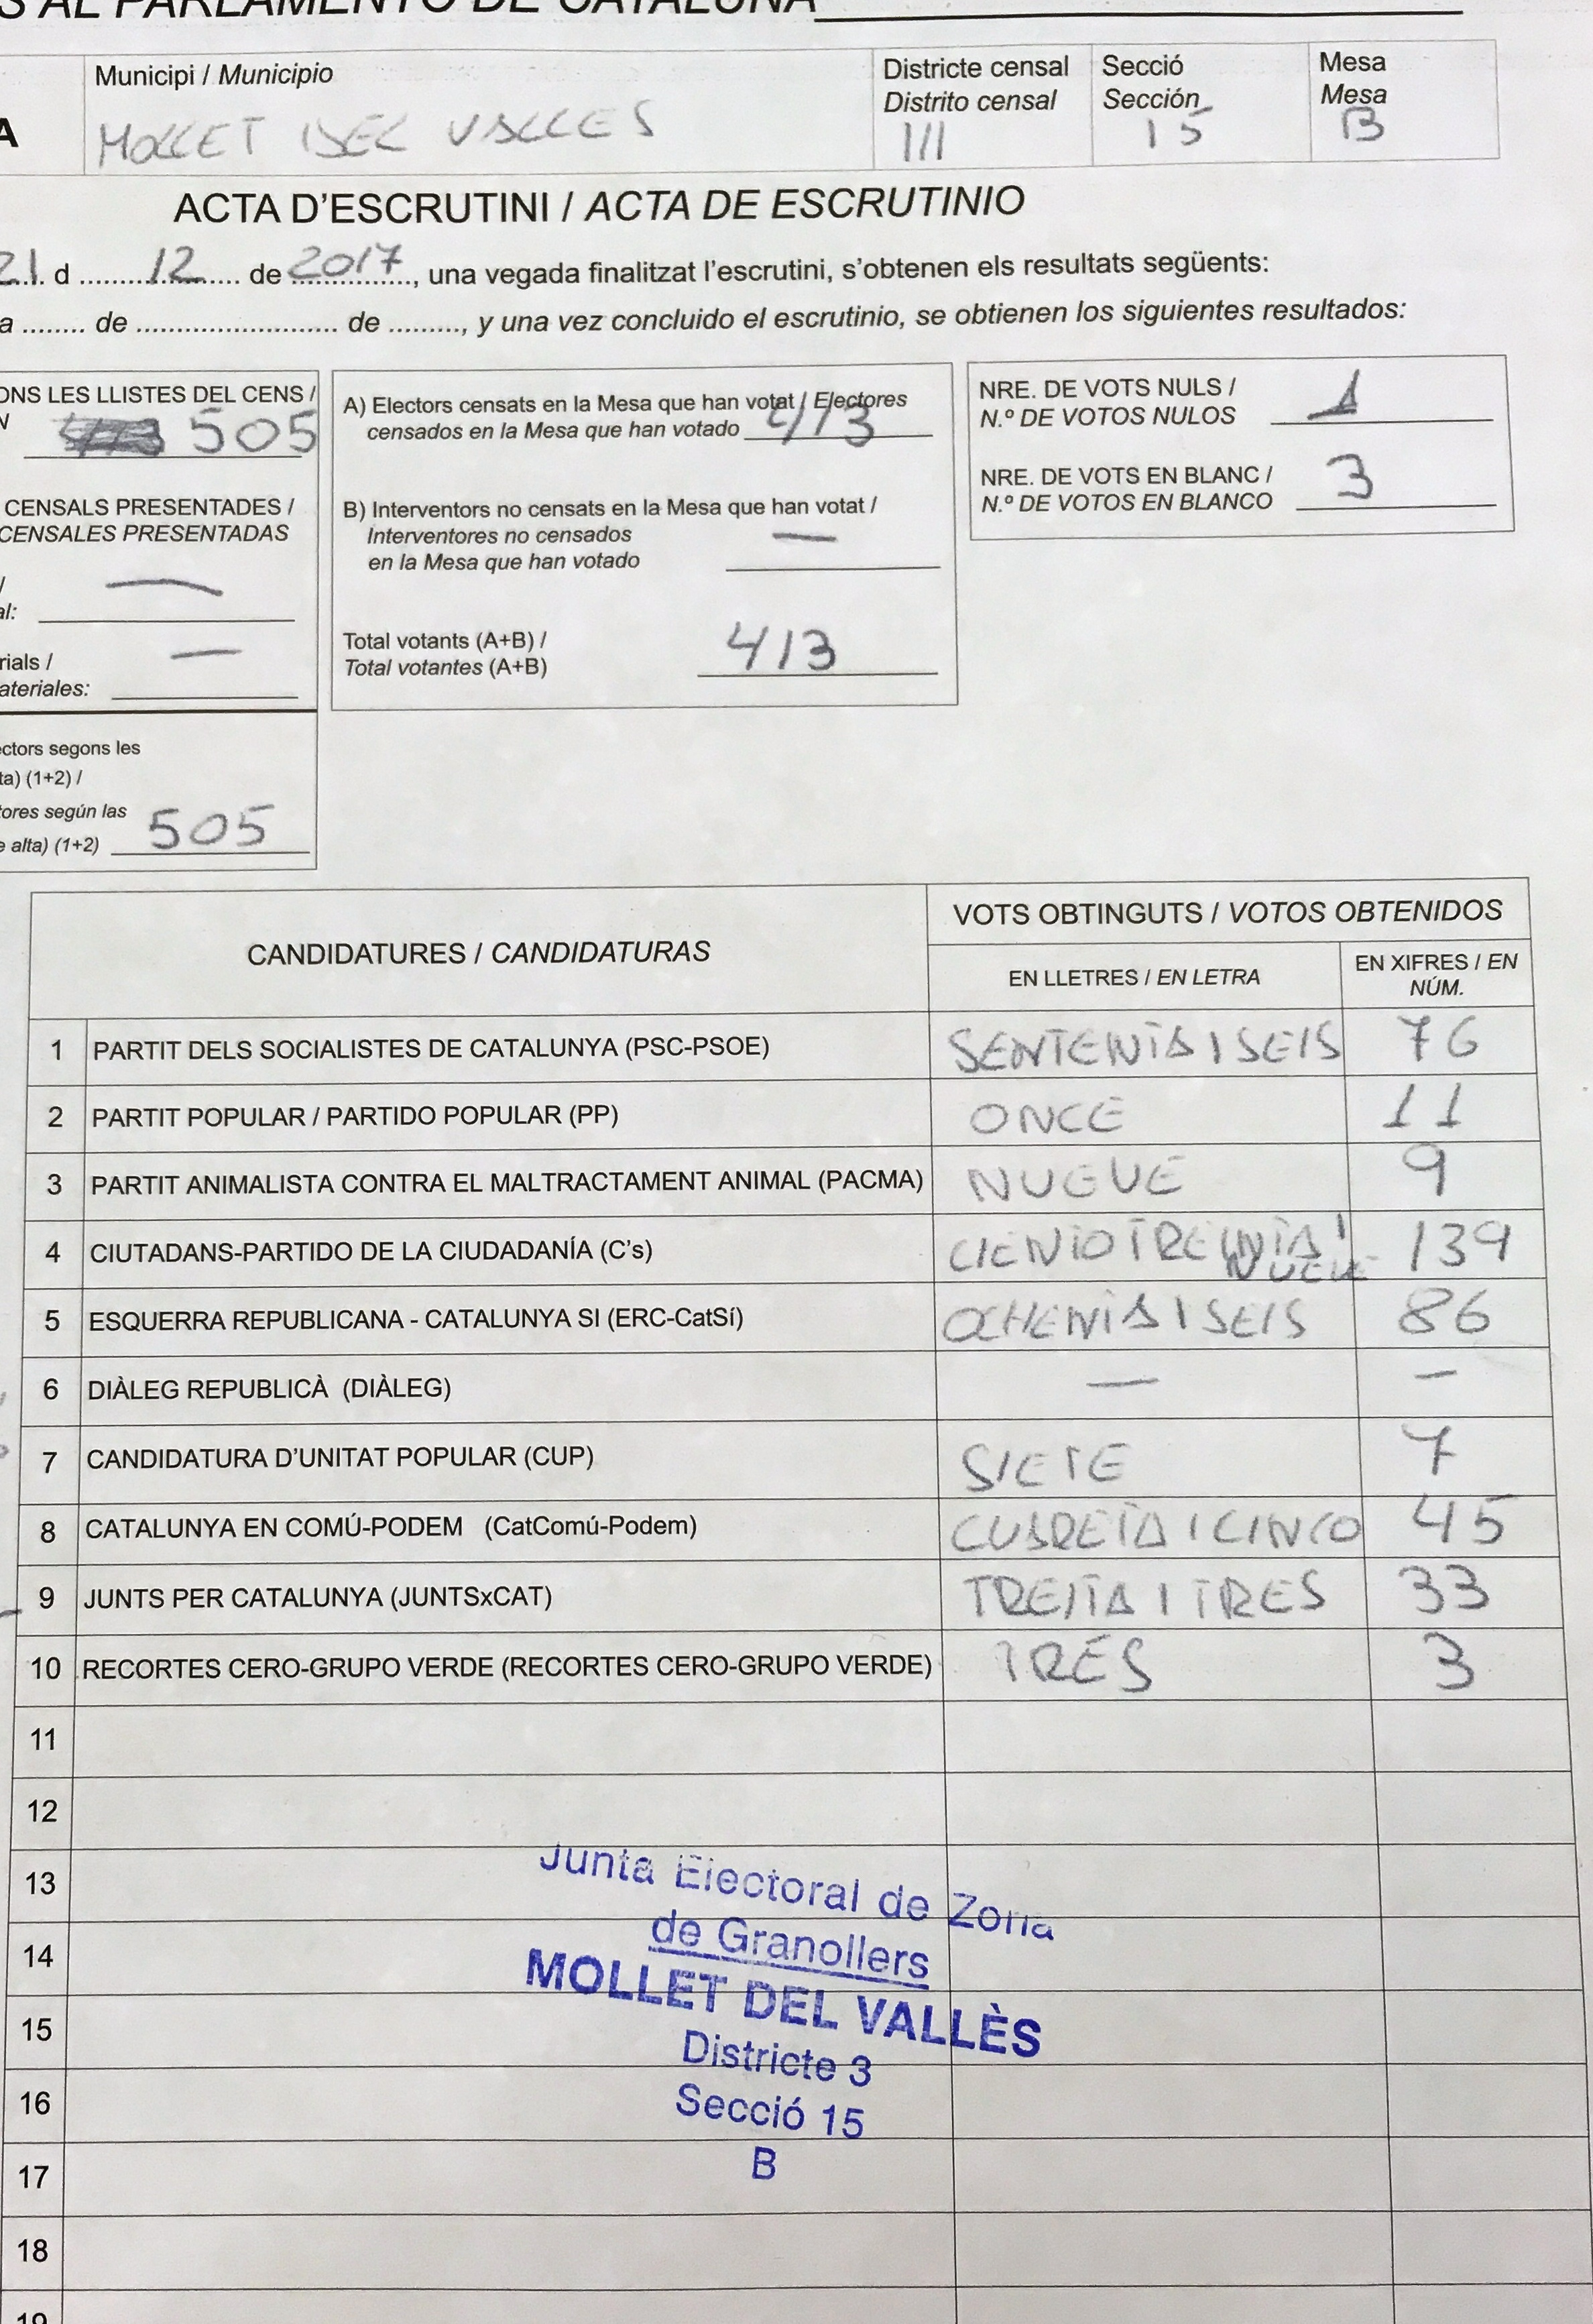 S AL PARLAMENTO DE CATALUÑA
A
Municipi / Municipio
MOLLET DEL VALLES
Districte censal
Distrito censal
III
Secció
Sección
15
Mesa
Mesa
B
ACTA D'ESCRUTINI / ACTA DE ESCRUTINIO
21 d ........ 12 ........ de 2017, una vegada finalitzat l'escrutini, s'obtenen els resultats següents:
a ........ de ........................ de ........., y una vez concluido el escrutinio, se obtienen los siguientes resultados:
ONS LES LLISTES DEL CENS /
N
505
CENSALS PRESENTADES /
CENSALES PRESENTADAS
/
—
al:
rials /
—
ateriales:
ectors segons les
ta) (1+2) /
tores según las
e alta) (1+2) 505
A) Electors censats en la Mesa que han votat / Electores
censados en la Mesa que han votado 413
B) Interventors no censats en la Mesa que han votat /
Interventores no censados
en la Mesa que han votado —
Total votants (A+B) /
Total votantes (A+B) 413
NRE. DE VOTS NULS /
N.º DE VOTOS NULOS 1
NRE. DE VOTS EN BLANC /
N.º DE VOTOS EN BLANCO 3
CANDIDATURES / CANDIDATURAS
VOTS OBTINGUTS / VOTOS OBTENIDOS
EN LLETRES / EN LETRA
EN XIFRES / EN
NÚM.
1 PARTIT DELS SOCIALISTES DE CATALUNYA (PSC-PSOE) SENTENTA I SEIS 76
2 PARTIT POPULAR / PARTIDO POPULAR (PP) ONCE 11
3 PARTIT ANIMALISTA CONTRA EL MALTRACTAMENT ANIMAL (PACMA) NUEVE 9
4 CIUTADANS-PARTIDO DE LA CIUDADANÍA (C's) CIENTO TREINTA I NUEVE 139
5 ESQUERRA REPUBLICANA - CATALUNYA SI (ERC-CatSí) OCHENTA I SEIS 86
6 DIÀLEG REPUBLICÀ (DIÀLEG) — —
7 CANDIDATURA D'UNITAT POPULAR (CUP) SIETE 7
8 CATALUNYA EN COMÚ-PODEM (CatComú-Podem) CUARETA I CINCO 45
9 JUNTS PER CATALUNYA (JUNTSxCAT) TREITA I TRES 33
10 RECORTES CERO-GRUPO VERDE (RECORTES CERO-GRUPO VERDE) TRES 3
11
12
13
14
15
16
17
18
19
Junta Electoral de Zona
de Granollers
MOLLET DEL VALLÈS
Districte 3
Secció 15
B